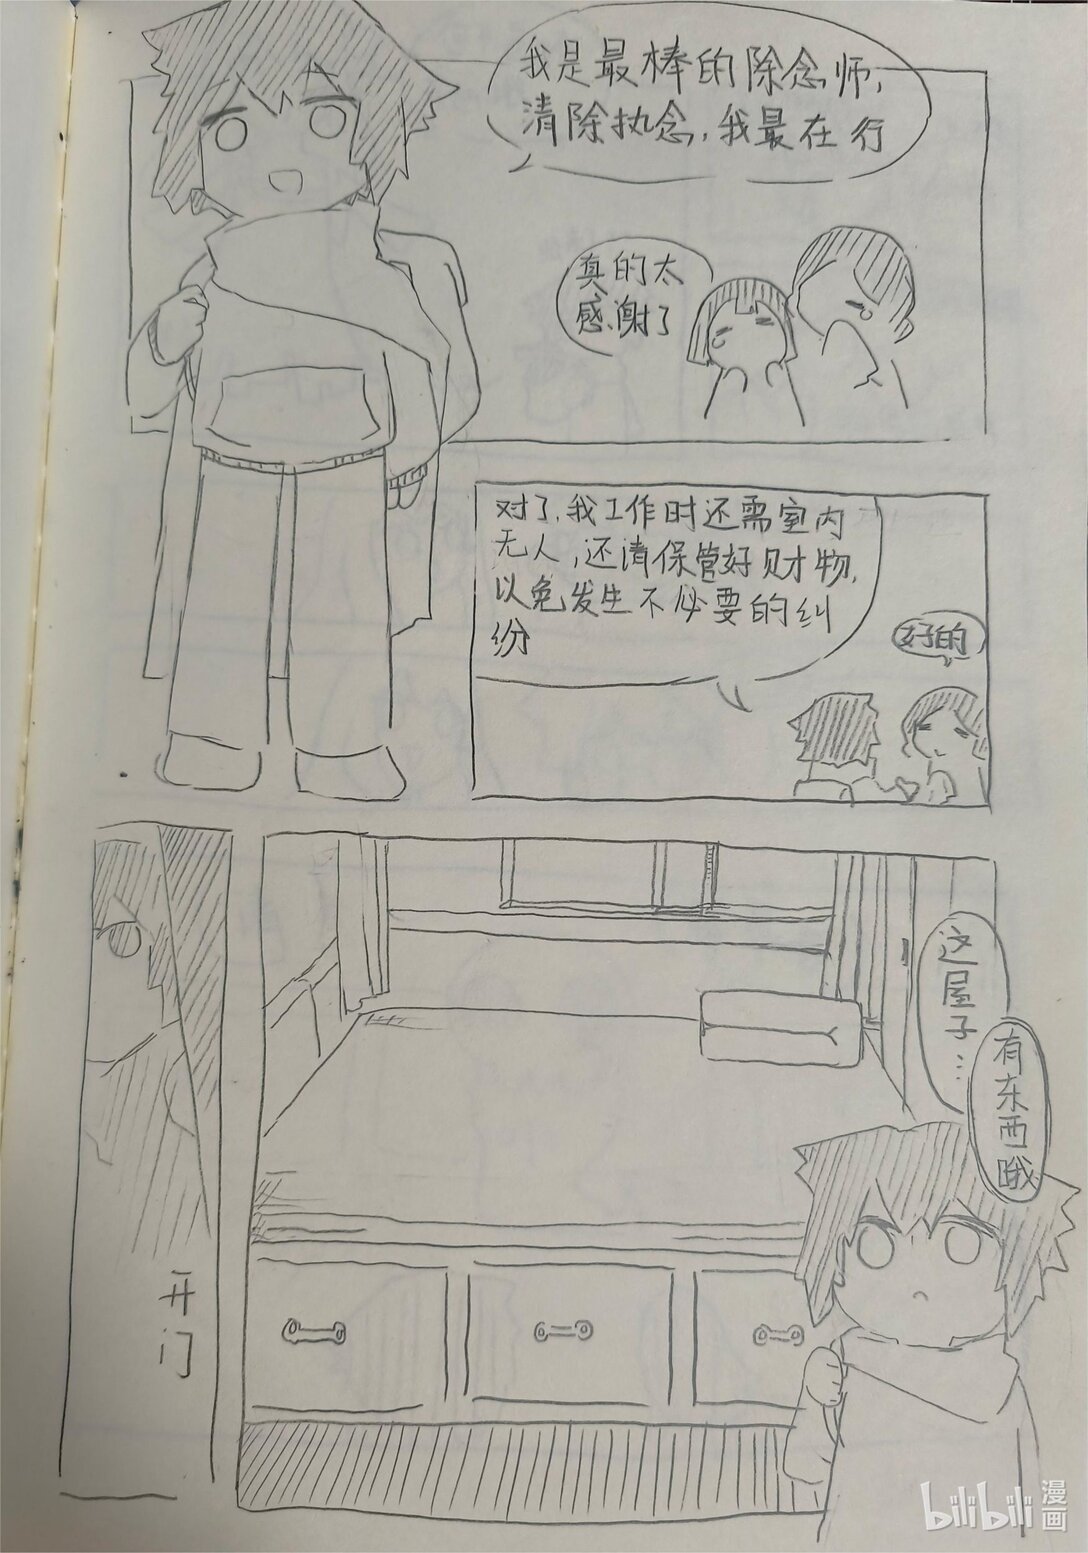 我是最棒的除念师，
清除执念，我最在行
真的太
感谢了
对了，我工作时还需室内
无人，还请保管好财物，
以免发生不必要的纠
纷
好的
开门
这屋子…
有东西哦
bilibili 漫画